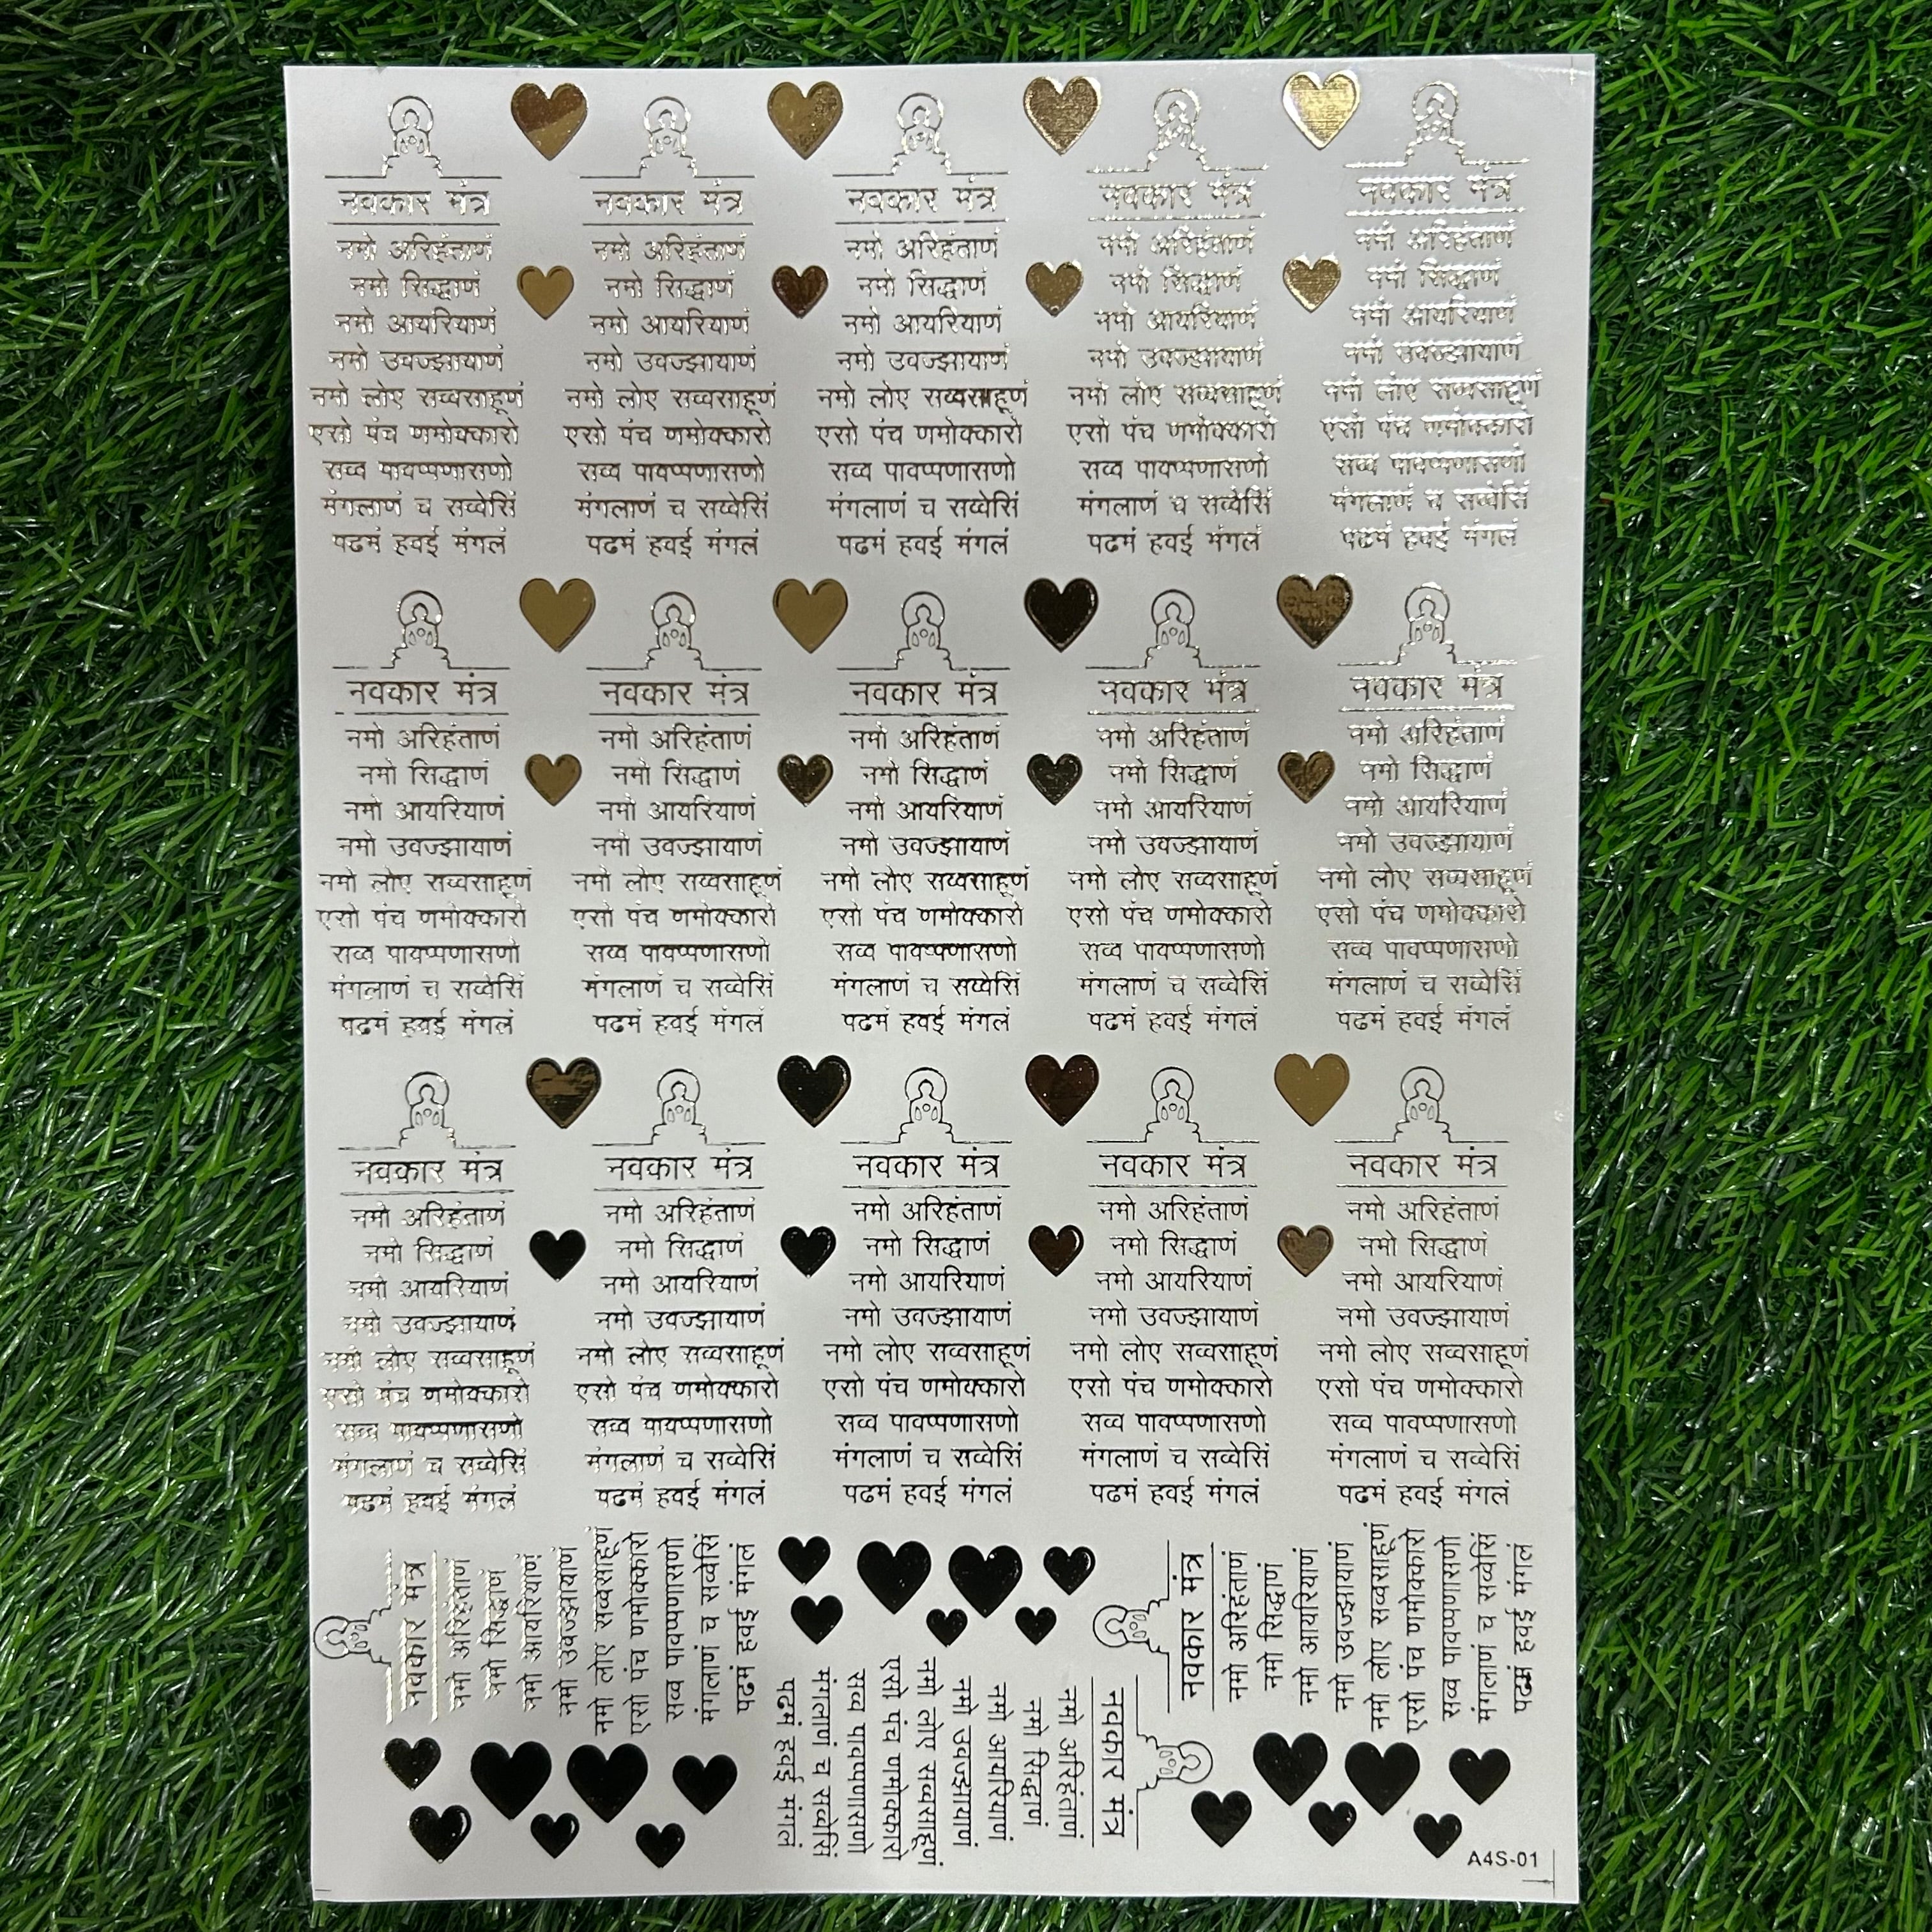 नवकार मंत्र
नमो अरिहंताणं
नमो सिद्धाणं
नमो आयरियाणं
नमो उवज्झायाणं
नमो लोए सव्वसाहूणं
एसो पंच णमोक्कारो
सव्व पावप्पणासणो
मंगलाणं च सव्वेसिं
पढमं हवई मंगलं
नवकार मंत्र
नमो अरिहंताणं
नमो सिद्धाणं
नमो आयरियाणं
नमो उवज्झायाणं
नमो लोए सव्वसाहूणं
एसो पंच णमोक्कारो
सव्व पावप्पणासणो
मंगलाणं च सव्वेसिं
पढमं हवई मंगलं
नवकार मंत्र
नमो अरिहंताणं
नमो सिद्धाणं
नमो आयरियाणं
नमो उवज्झायाणं
नमो लोए सव्वसाहूणं
एसो पंच णमोक्कारो
सव्व पावप्पणासणो
मंगलाणं च सव्वेसिं
पढमं हवई मंगलं
नवकार मंत्र
नमो अरिहंताणं
नमो सिद्धाणं
नमो आयरियाणं
नमो उवज्झायाणं
नमो लोए सव्वसाहूणं
एसो पंच णमोक्कारो
सव्व पावप्पणासणो
मंगलाणं च सव्वेसिं
पढमं हवई मंगलं
नवकार मंत्र
नमो अरिहंताणं
नमो सिद्धाणं
नमो आयरियाणं
नमो उवज्झायाणं
नमो लोए सव्वसाहूणं
एसो पंच णमोक्कारो
सव्व पावप्पणासणो
मंगलाणं च सव्वेसिं
पढमं हवई मंगलं
नवकार मंत्र
नमो अरिहंताणं
नमो सिद्धाणं
नमो आयरियाणं
नमो उवज्झायाणं
नमो लोए सव्वसाहूणं
एसो पंच णमोक्कारो
सव्व पावप्पणासणो
मंगलाणं च सव्वेसिं
पढमं हवई मंगलं
नवकार मंत्र
नमो अरिहंताणं
नमो सिद्धाणं
नमो आयरियाणं
नमो उवज्झायाणं
नमो लोए सव्वसाहूणं
एसो पंच णमोक्कारो
सव्व पावप्पणासणो
मंगलाणं च सव्वेसिं
पढमं हवई मंगलं
नवकार मंत्र
नमो अरिहंताणं
नमो सिद्धाणं
नमो आयरियाणं
नमो उवज्झायाणं
नमो लोए सव्वसाहूणं
एसो पंच णमोक्कारो
सव्व पावप्पणासणो
मंगलाणं च सव्वेसिं
पढमं हवई मंगलं
नवकार मंत्र
नमो अरिहंताणं
नमो सिद्धाणं
नमो आयरियाणं
नमो उवज्झायाणं
नमो लोए सव्वसाहूणं
एसो पंच णमोक्कारो
सव्व पावप्पणासणो
मंगलाणं च सव्वेसिं
पढमं हवई मंगलं
नवकार मंत्र
नमो अरिहंताणं
नमो सिद्धाणं
नमो आयरियाणं
नमो उवज्झायाणं
नमो लोए सव्वसाहूणं
एसो पंच णमोक्कारो
सव्व पावप्पणासणो
मंगलाणं च सव्वेसिं
पढमं हवई मंगलं
नवकार मंत्र
नमो अरिहंताणं
नमो सिद्धाणं
नमो आयरियाणं
नमो उवज्झायाणं
नमो लोए सव्वसाहूणं
एसो पंच णमोक्कारो
सव्व पावप्पणासणो
मंगलाणं च सव्वेसिं
पढमं हवई मंगलं
नवकार मंत्र
नमो अरिहंताणं
नमो सिद्धाणं
नमो आयरियाणं
नमो उवज्झायाणं
नमो लोए सव्वसाहूणं
एसो पंच णमोक्कारो
सव्व पावप्पणासणो
मंगलाणं च सव्वेसिं
पढमं हवई मंगलं
नवकार मंत्र
नमो अरिहंताणं
नमो सिद्धाणं
नमो आयरियाणं
नमो उवज्झायाणं
नमो लोए सव्वसाहूणं
एसो पंच णमोक्कारो
सव्व पावप्पणासणो
मंगलाणं च सव्वेसिं
पढमं हवई मंगलं
नवकार मंत्र
नमो अरिहंताणं
नमो सिद्धाणं
नमो आयरियाणं
नमो उवज्झायाणं
नमो लोए सव्वसाहूणं
एसो पंच णमोक्कारो
सव्व पावप्पणासणो
मंगलाणं च सव्वेसिं
पढमं हवई मंगलं
नवकार मंत्र
नमो अरिहंताणं
नमो सिद्धाणं
नमो आयरियाणं
नमो उवज्झायाणं
नमो लोए सव्वसाहूणं
एसो पंच णमोक्कारो
सव्व पावप्पणासणो
मंगलाणं च सव्वेसिं
पढमं हवई मंगलं
नवकार मंत्र
नमो अरिहंताणं
नमो सिद्धाणं
नमो आयरियाणं
नमो उवज्झायाणं
नमो लोए सव्वसाहूणं
एसो पंच णमोक्कारो
सव्व पावप्पणासणो
मंगलाणं च सव्वेसिं
पढमं हवई मंगलं
नवकार मंत्र
नमो अरिहंताणं
नमो सिद्धाणं
नमो आयरियाणं
नमो उवज्झायाणं
नमो लोए सव्वसाहूणं
एसो पंच णमोक्कारो
सव्व पावप्पणासणो
मंगलाणं च सव्वेसिं
पढमं हवई मंगलं
नवकार मंत्र
नमो अरिहंताणं
नमो सिद्धाणं
नमो आयरियाणं
नमो उवज्झायाणं
नमो लोए सव्वसाहूणं
एसो पंच णमोक्कारो
सव्व पावप्पणासणो
मंगलाणं च सव्वेसिं
पढमं हवई मंगलं
A4S-01